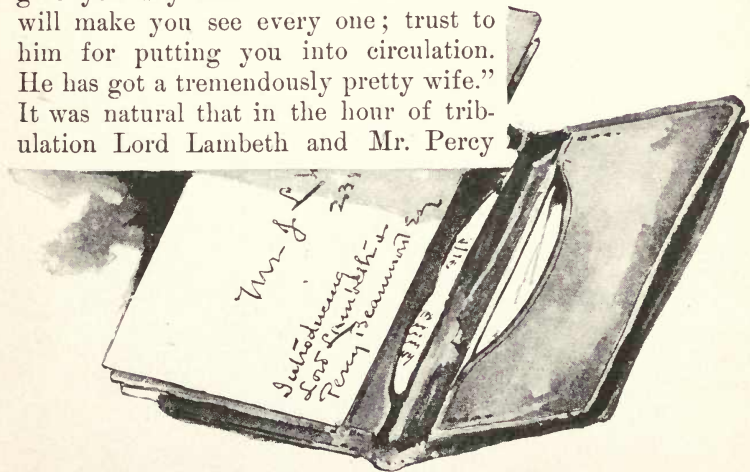 will make you see every one; trust to
him for putting you into circulation.
He has got a tremendously pretty wife.”
It was natural that in the hour of trib-
ulation Lord Lambeth and Mr. Percy
Mr J L
Introducing
Lord Lambeth &
Percy Beaumont Esq